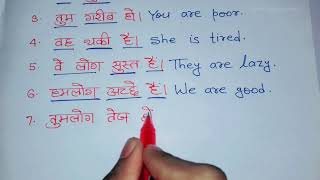 3. तुम गरीब हो। You are poor.
4. वह थकी है। she is tired.
5. वे लोग सुस्त हैं। They are lazy.
6. हमलोग अच्छे हैं। We are good.
7. तुमलोग तेज